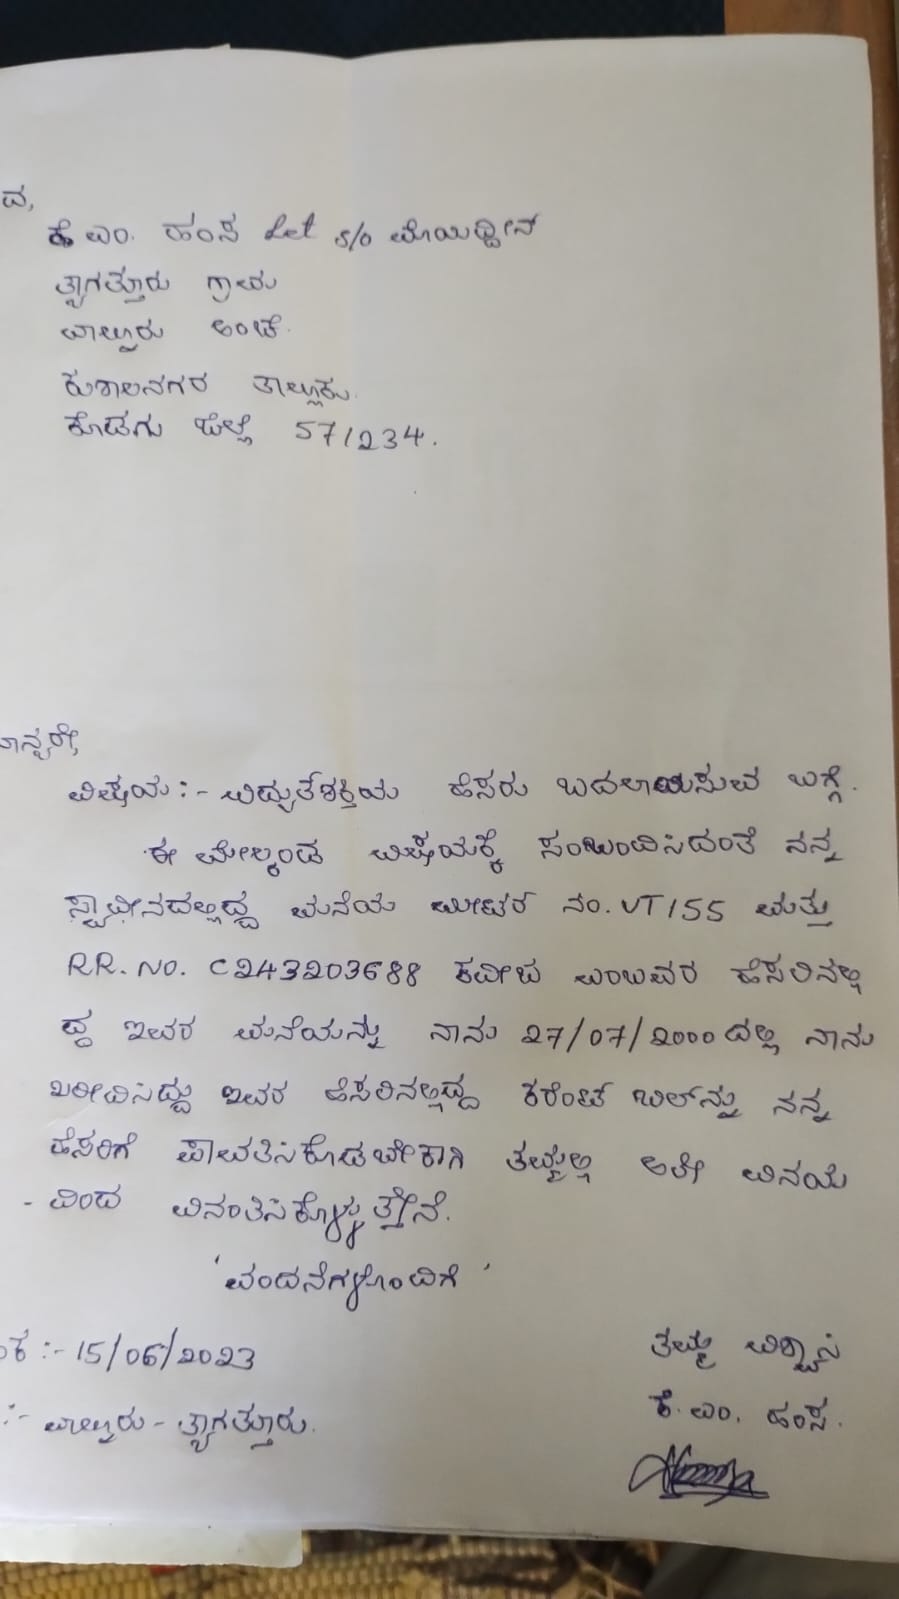 ವ,
ಕೆ ಎಂ. ಹಂಸ Let s/o ಮೊಯಿದ್ದೀನ್
ತ್ಯಾಗತ್ತೂರು ಗ್ರಾಮ
ವಾಲ್ನೂರು ಅಂಚೆ.
ಕುಶಾಲನಗರ ತಾಲ್ಲೂಕು.
ಕೊಡಗು ಜಿಲ್ಲೆ 571234.
ಾನ್ಯರೇ,
ವಿಷಯ :- ವಿದ್ಯುತ್‌ಶಕ್ತಿಯ ಹೆಸರು ಬದಲಾಯಿಸುವ ಬಗ್ಗೆ.
ಈ ಮೇಲ್ಕಂಡ ವಿಷಯಕ್ಕೆ ಸಂಬಂದಿಸಿದಂತೆ ನನ್ನ
ಸ್ವಾಧೀನದಲ್ಲಿದ್ದ ಮನೆಯ ಮೀಟರ್ ನಂ. VT155 ಮತ್ತು
RR. No. C243203688 ಕವೀಟ ಎಂಬುವರ ಹೆಸಲಿನಲ್ಲಿ
ದ್ದ ಇವರ ಮನೆಯನ್ನು ನಾನು 27/07/2000ದಲ್ಲಿ ನಾನು
ಖರೀದಿಸಿದ್ದು ಇವರ ಹೆಸಲಿನಲ್ಲಿದ್ದ ಕರೆಂಟ್ ಬಿಲ್‌ನ್ನು ನನ್ನ
ಹೆಸರಿಗೆ ಪಾವತಿಸಿಕೊಡಬೇಕಾಗಿ ತಮ್ಮಲ್ಲಿ ಅತೀ ವಿನಯ
- ದಿಂದ ವಿನಂತಿಸಿಕೊಳ್ಳುತ್ತೇನೆ.
'ವಂದನೆಗಳೊಂದಿಗೆ'
ಂಕ :- 15/06/2023
ತಮ್ಮ ವಿಶ್ವಾಸಿ
:- ವಾಲ್ನೂರು - ತ್ಯಾಗತ್ತೂರು.
ಕೆ. ಎಂ. ಹಂಸ.